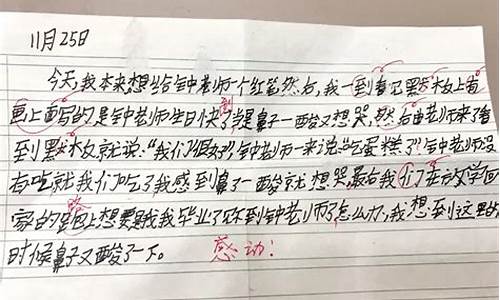 11月25日
今天,我本来想给钟老师一个红笔然右,我一到看见黑木板上有
画上面写的是钟老师生日快 当是鼻子一酸又想哭,然后由老师来了看
到黑木板就说:“我们很好”,钟老师一来说“吃蛋糕了”钟老师没
有吃就我们吃了我感到鼻子一酸就想哭,最后我们在放学回
家的路上想要是我毕业了见不到钟老师了怎么办,我想到这里的
时候鼻子又酸了一下。 感动!